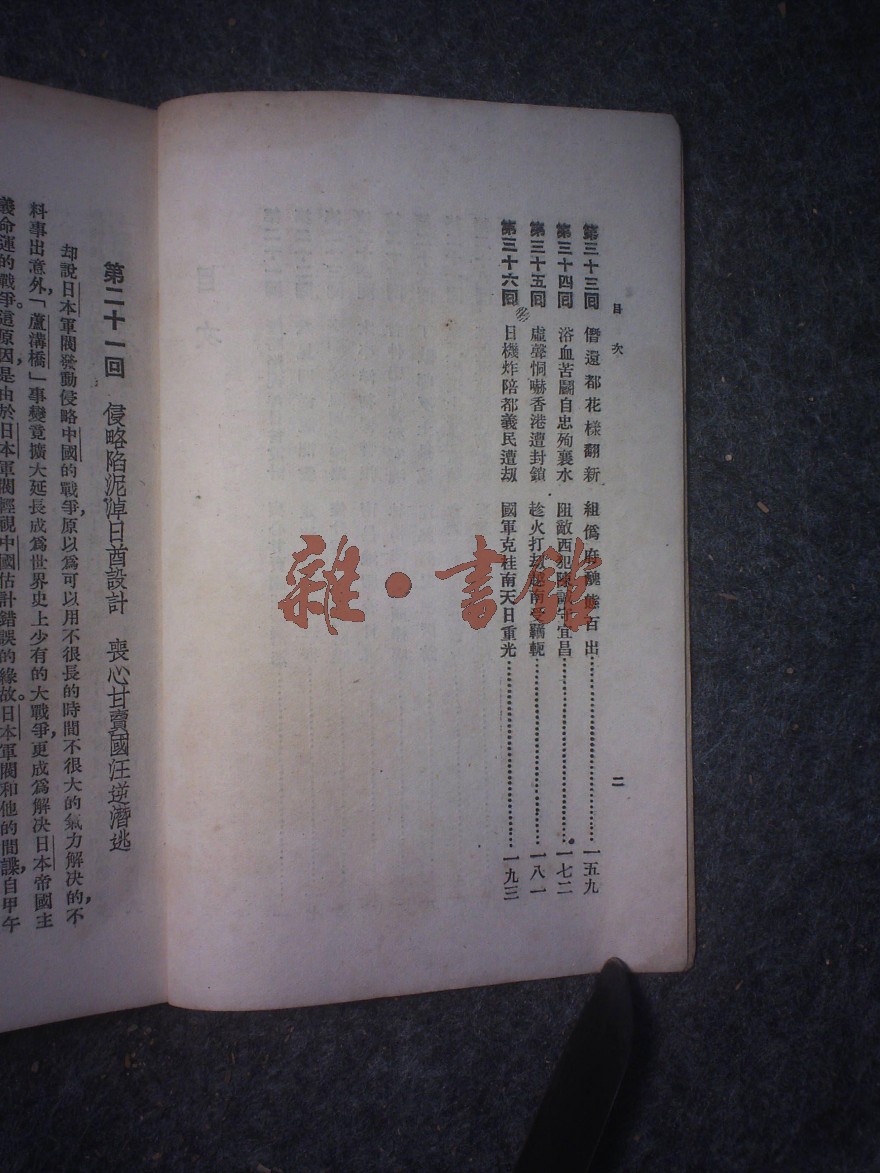 目次
二
第三十三回 僭還都花樣翻新 組僞府醜態百出 一五九
第三十四回 浴血苦鬭自忠殉襄水 阻敵西犯陳誠守宜昌 一七二
第三十五回 虛聲恫嚇香港遭封鎖 趁火打劫越南受羈軛 一八一
第三十六回 日機炸陪都義民遭劫 國軍克桂南天日重光 一九三
雜·書館
第二十一回 侵略陷泥淖日酋設計 喪心甘賣國汪逆潛逃
却說日本軍閥發動侵略中國的戰爭，原以爲可以用不很長的時間不很大的氣力解决的，不
料事出意外，「蘆溝橋」事變竟擴大延長成爲世界史上少有的大戰爭，更成爲解决日本帝國主
義命運的戰爭。這原因，是由於日本軍閥輕視中國估計錯誤的緣故。日本軍閥和他的間諜，自甲午